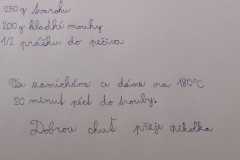 250 g tvarohu
200 g hladké mouky
1/2 prášku do pečiva
Vše zamíchám a dáme na 180°C
20 minut péct do trouby.
Dobrou chuť přeje Nikolka